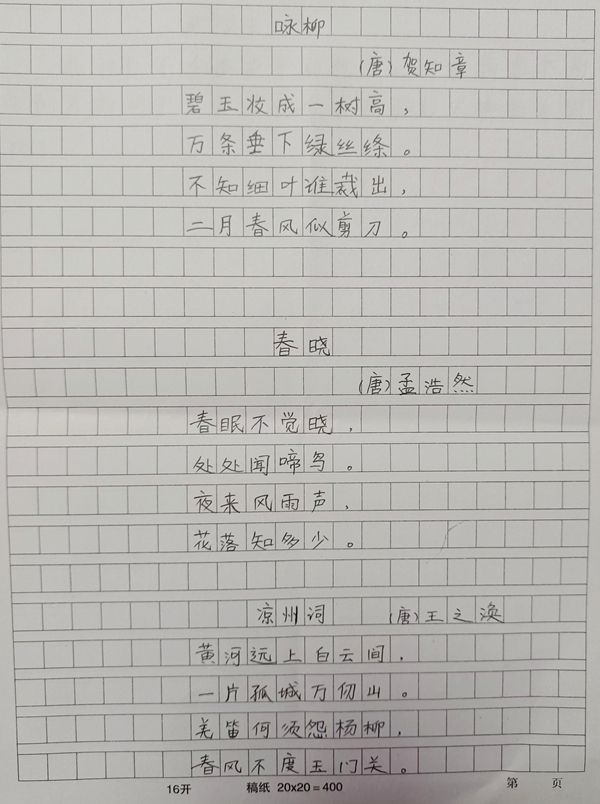 咏柳
(唐)贺知章
碧玉妆成一树高,
万条垂下绿丝绦。
不知细叶谁裁出,
二月春风似剪刀。
春晓
(唐)孟浩然
春眠不觉晓,
处处闻啼鸟。
夜来风雨声,
花落知多少。
凉州词 (唐)王之涣
黄河远上白云间,
一片孤城万仞山。
羌笛何须怨杨柳,
春风不度玉门关。
16开 稿纸 20x20=400 第 页